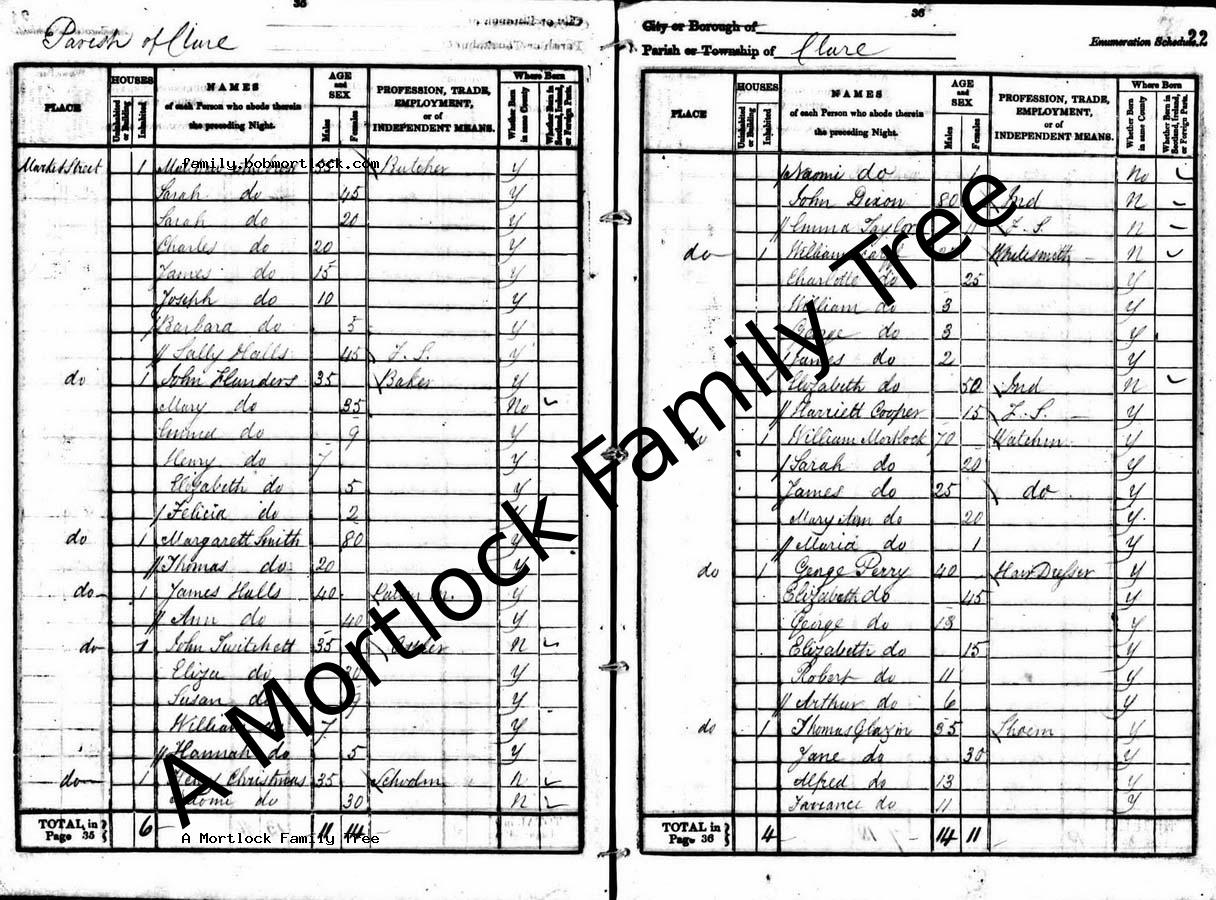 35
Parish of Clare
HOUSES
AGE and SEX
Where Born
PLACE
Uninhabited or Building
Inhabited
NAMES of each Person who abode therein the preceding Night.
Males
Females
PROFESSION, TRADE, EMPLOYMENT, or of INDEPENDENT MEANS.
Whether Born in same County
Whether Born in Scotland, Ireland, or Foreign Parts.
family.bobmortlock.com
Market Street 1 35 Butcher Y
Sarah do 45 Y
Sarah do 20 Y
Charles do 20 Y
James do 15 Y
Joseph do 10 Y
Barbara do 5 Y
Sally Halls 45 F. S. Y
do 1 John Flanders 35 Baker Y
Mary do 35 No
do 9 Y
Henry do 7 Y
Elizabeth do 5 Y
Felicia do 2 Y
do 1 Margarett Smith 80 Y
Thomas do 20 Y
do 1 James Halls 40 Y
Ann do 40 Y
do 1 John Twitchett 35 N
Eliza do Y
Susan do 9 Y
William do 7 Y
Hannah do 5 Y
do 1 Christmas 35 Schoolm N
do 30 N
TOTAL in Page 35 6 11 14
A Mortlock Family Tree
36
City or Borough of
Parish or Township of Clare
Enumeration Schedule.
22
HOUSES
AGE and SEX
Where Born
PLACE
Uninhabited or Building
Inhabited
NAMES of each Person who abode therein the preceding Night.
Males
Females
PROFESSION, TRADE, EMPLOYMENT, or of INDEPENDENT MEANS.
Whether Born in same County
Whether Born in Scotland, Ireland, or Foreign Parts.
Naomi do 1 No
John Dixon 80 Ind N
Emma Taylor F. S. N
do 1 William Whitesmith N
Charlotte do 25 Y
William do 3 Y
George do 3 Y
James do 2 Y
Elizabeth do 50 Ind N
Harriett Cooper 15 F. S. Y
do 1 William Mortlock 70 Watchm Y
Sarah do 20 Y
James do 25 do Y
Mary Ann do 20 Y
Maria do 1 Y
do 1 George Perry 40 Hair Dresser Y
Elizabeth do 45 Y
George do 13 Y
Elizabeth do 15 Y
Robert do 11 Y
Arthur do 6 Y
do 1 Thomas Glazin 35 Shoem Y
Jane do 30 Y
Alfred do 13 Y
do 11 Y
TOTAL in Page 36 4 14 11
A Mortlock Family Tree